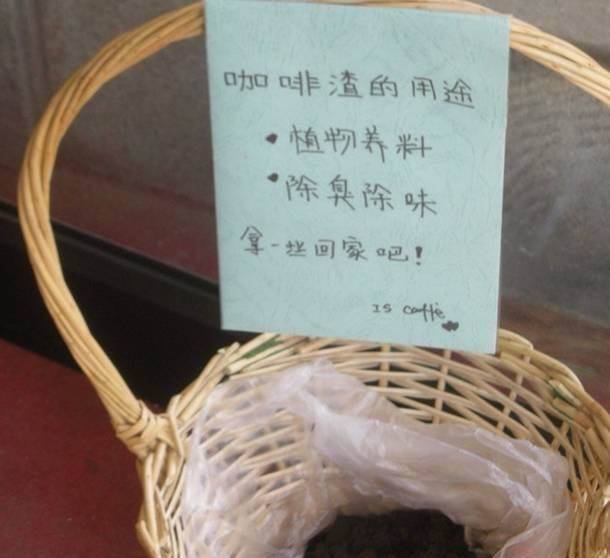 咖啡渣的用途
• 植物养料
• 除臭除味
拿一些回家吧!
IS caffè